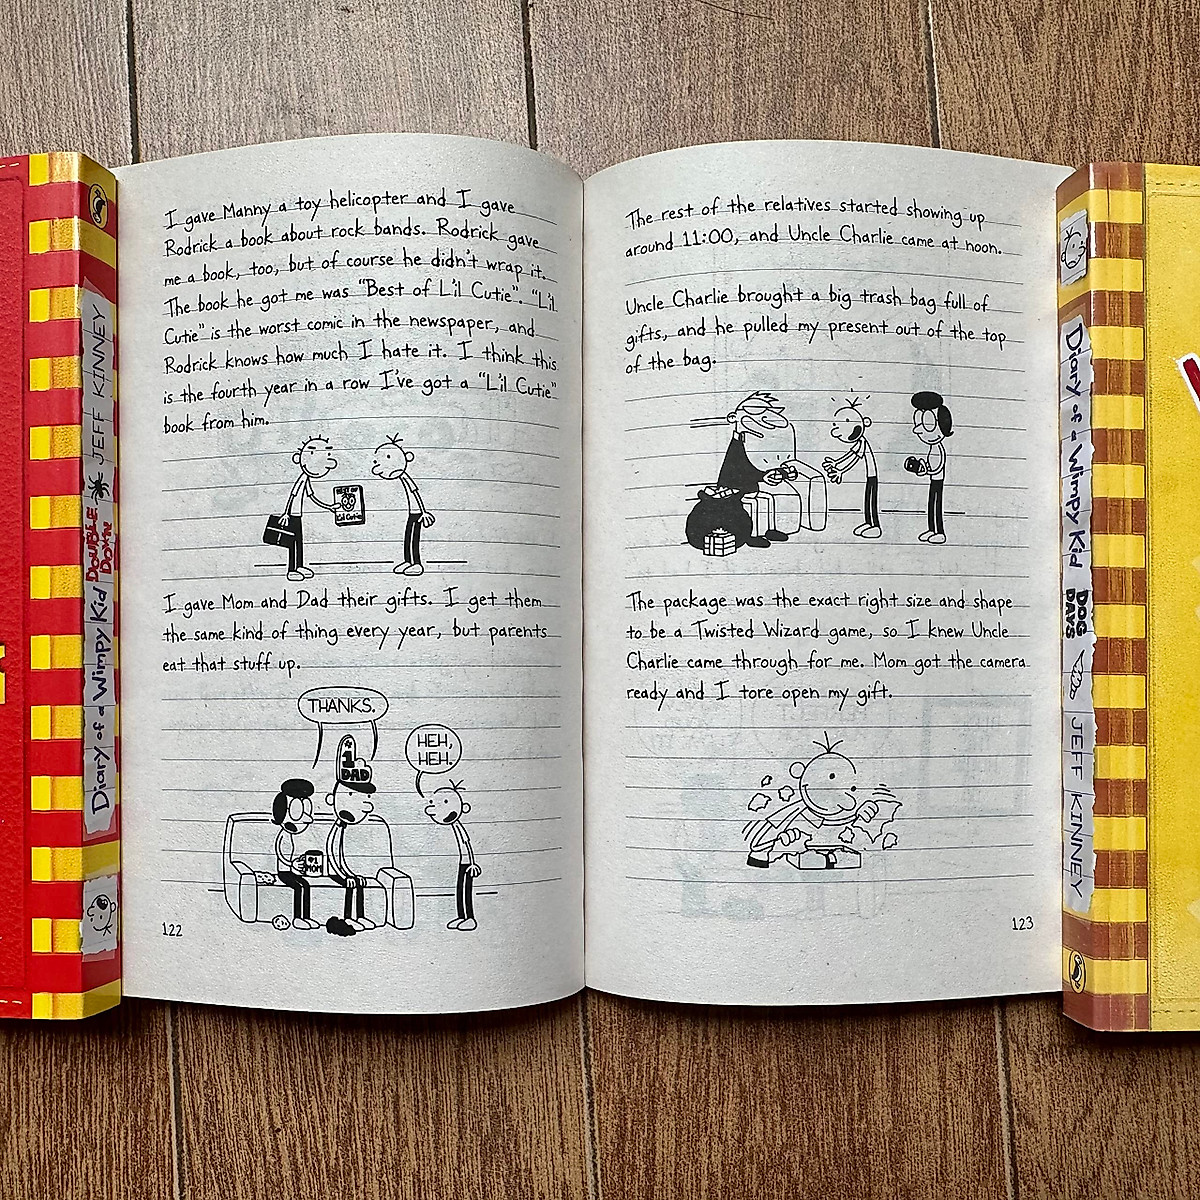 I gave Manny a toy helicopter and I gave
Rodrick a book about rock bands. Rodrick gave
me a book, too, but of course he didn't wrap it.
The book he got me was "Best of L'il Cutie". "L'il
Cutie" is the worst comic in the newspaper, and
Rodrick knows how much I hate it. I think this
is the fourth year in a row I've got a "L'il Cutie"
book from him.
BEST OF
Lil Cutie
I gave Mom and Dad their gifts. I get them
the same kind of thing every year, but parents
eat that stuff up.
THANKS.
HEH,
HEH.
#1
DAD
#1
MOM
122
The rest of the relatives started showing up
around 11:00, and Uncle Charlie came at noon.
Uncle Charlie brought a big trash bag full of
gifts, and he pulled my present out of the top
of the bag.
The package was the exact right size and shape
to be a Twisted Wizard game, so I knew Uncle
Charlie came through for me. Mom got the camera
ready and I tore open my gift.
123
Diary of a Wimpy Kid DOUBLE DOWN JEFF KINNEY
Diary of a Wimpy Kid DOG DAYS JEFF KINNEY